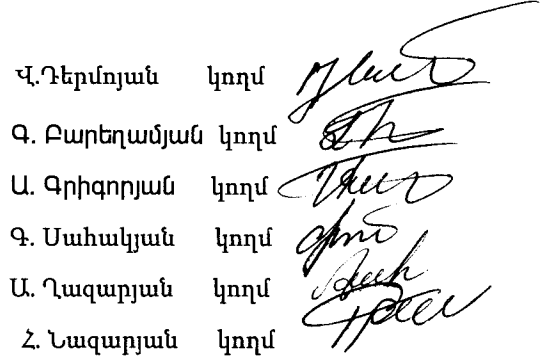 Վ.Դերմոյան կողմ
Գ. Բարեղամյան կողմ
Ա. Գրիգորյան կողմ
Գ. Սահակյան կողմ
Ա. Ղազարյան կողմ
Հ. Նազարյան կողմ